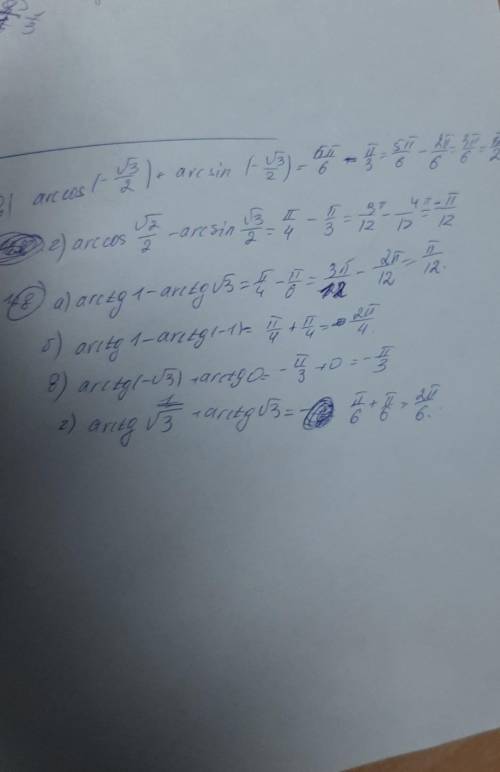 в) arccos(-√3/2) + arcsin(-√3/2) = 5π/6 - π/3 = 5π/6 - 2π/6 = 3π/6 = π/2
г) arccos √2/2 - arcsin √3/2 = π/4 - π/3 = 3π/12 - 4π/12 = -π/12
8 а) arctg 1 - arctg √3 = π/4 - π/6 = 3π/12 - 2π/12 = π/12.
б) arctg 1 - arctg(-1) = π/4 + π/4 = 2π/4.
в) arctg(-√3) + arctg 0 = -π/3 + 0 = -π/3
г) arctg 1/√3 + arctg √3 = π/6 + π/6 = 2π/6.